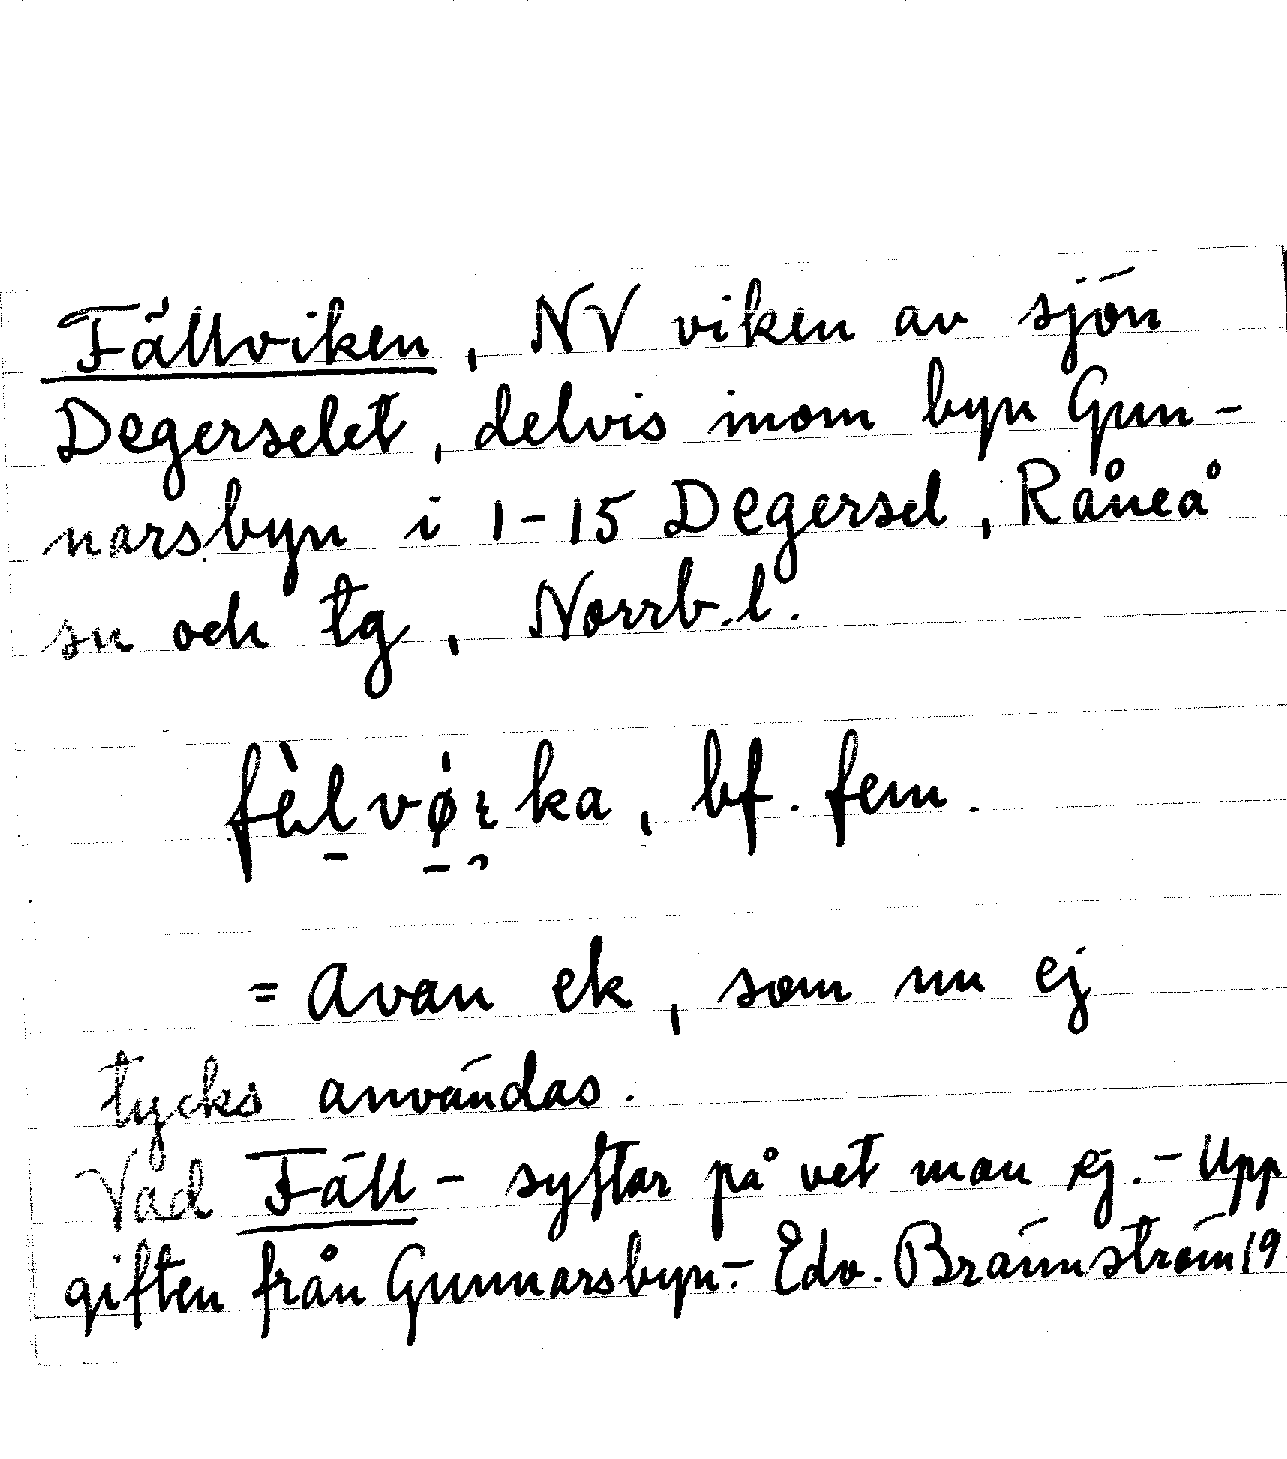 Fällviken, NV viken av sjön
Degerselet, delvis inom byn Gun-
narsbyn i 1-15 Degersel, Råneå
sn och tg, Norrb.l.
, bf. fem.
= Avan ek, som nu ej
tycks användas.
Vad Fäll- syftar på vet man ej. - Upp
giften från Gunnarsbyn. - Edv. Brännström 19